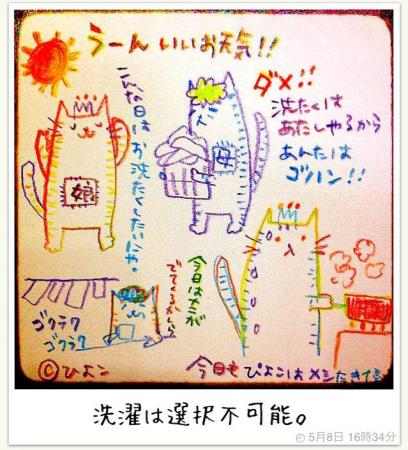 うーん いいお天気!!
こんな日はお洗たくしたいにゃ。
娘
母
ダメ!!
洗たくは
あたしやるから
あんたは
ゴハン!!
今日はなにが
でてくるかしら
ゴクラク
ゴクラク
今日も ぴよこはメシたき
洗濯は選択不可能。
5月8日 16時34分